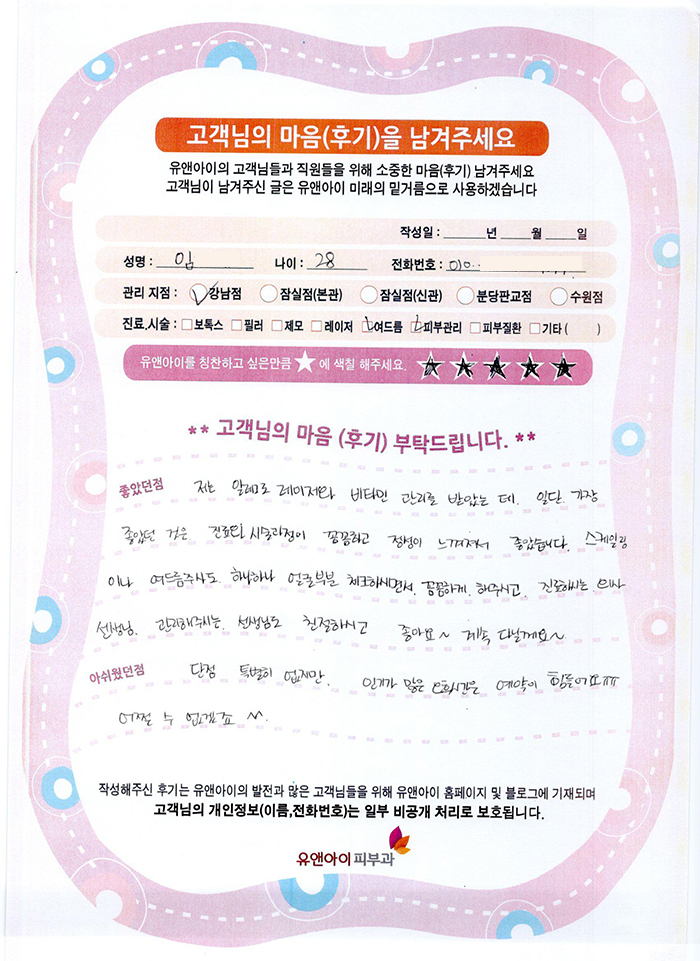 고객님의 마음(후기)을 남겨주세요
유앤아이의 고객님들과 직원들을 위해 소중한 마음(후기) 남겨주세요
고객님이 남겨주신 글은 유앤아이 미래의 밑거름으로 사용하겠습니다
작성일 : ______년 _____월 _____일
성명 : 임 나이 : 28 전화번호 : 010
관리 지점 : 강남점 잠실점(본관) 잠실점(신관) 분당판교점 수원점
진료,시술 : 보톡스 필러 제모 레이저 여드름 피부관리 피부질환 기타 ( )
유앤아이를 칭찬하고 싶은만큼 ★ 에 색칠 해주세요. ★★★★★
** 고객님의 마음 (후기) 부탁드립니다. **
좋았던점 저는 알레그로 레이저와 비타민 관리를 받았는 데. 일단 가장
좋았던 것은 진료와 시술과정이 꼼꼼하고 정성이 느껴져서 좋았습니다. 스케일링
이나 여드름주사도. 하나하나 얼굴부분 체크하시면서. 꼼꼼하게. 해주시고. 진료하시는 의사
선생님. 관리해주시는. 선생님도 친절하시고 좋아요~ 계속 다닐게요~
아쉬웠던점 단점 특별히 없지만. 인기가 많은 시간은 예약이 힘들어요ㅠㅠ
어쩔 수 없겠죠 ^^.
작성해주신 후기는 유앤아이의 발전과 많은 고객님들을 위해 유앤아이 홈페이지 및 블로그에 기재되며
고객님의 개인정보(이름,전화번호)는 일부 비공개 처리로 보호됩니다.
유앤아이피부과